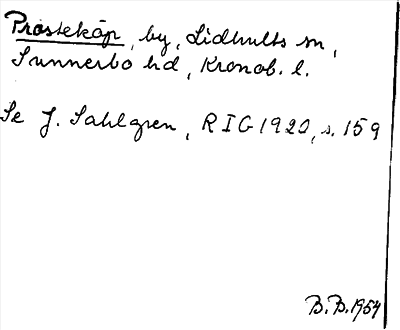 Prästekåp, by, Lidhults sn,
Sunnerbo hd, Kronob. l.
Se J. Sahlgren, RIG 1920, s. 159
B.B. 1954